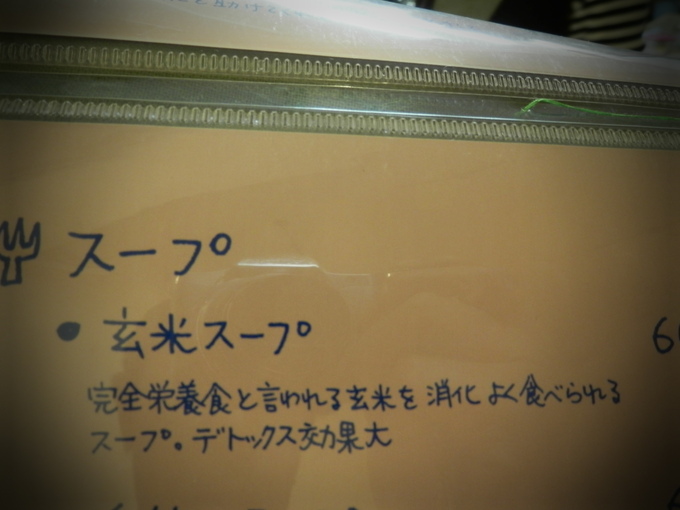 スープ
• 玄米スープ
完全栄養食と言われる玄米を消化よく食べられる
スープ。デトックス効果大